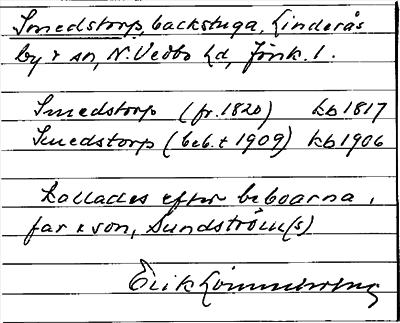 Smedstorp, backstuga, Linderås
by o sn, N. Vedbo hd, Jönk. l.
Smedstorp (fr. 1820) kb 1817
Smedstorp (beb. t 1909) kb 1906
Kallades efter beboarna,
far o son, Sundström(s)
Erik